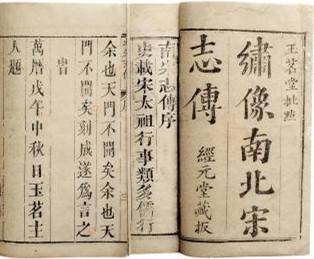 玉茗堂批點
繡像南北宋
志傳
經元堂藏板
南宋志傳序
史載宋太祖行事類多儒行
余也天門不開矣余也天
門不開矣刻成遂爲言之
旹
萬曆戊午中秋日玉茗主
人題